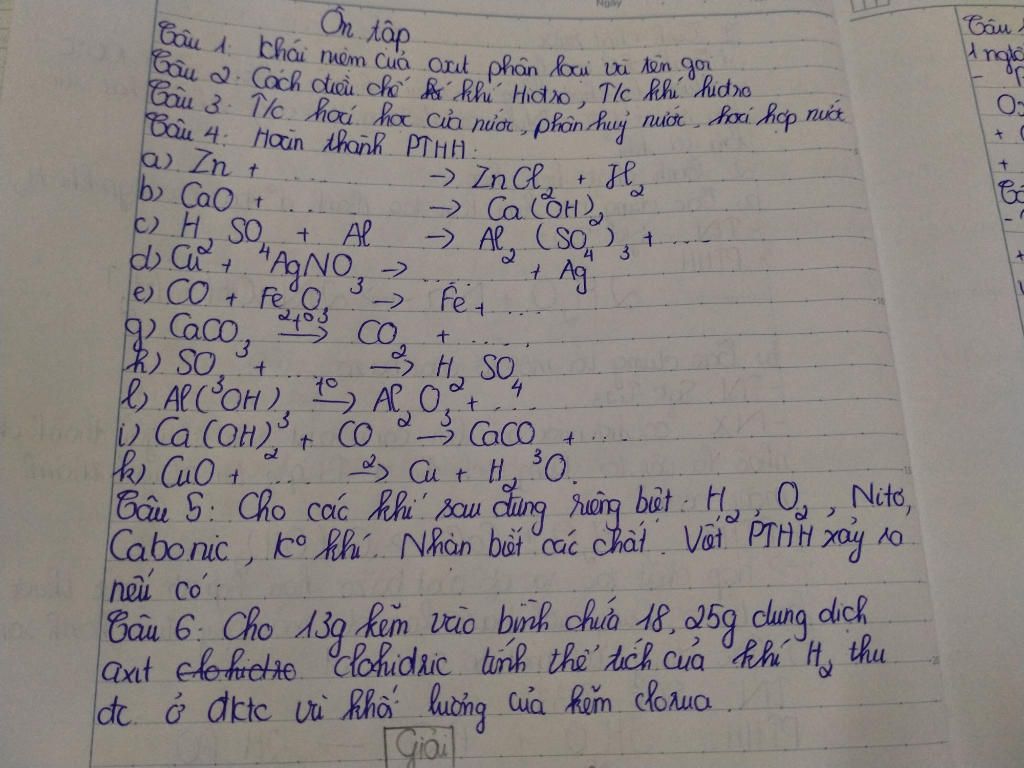 Ôn tập
Câu 1: Khái niệm của oxit phân loại và tên gọi
Câu 2: Cách điều chế khí Hiđro, T/c khí hiđro
Câu 3: T/c hoá học của nước, phân huỷ nước, hoá hợp nước
Câu 4: Hoàn thành PTHH:
a) Zn + ..... → ZnCl₂ + H₂
b) CaO + ..... → Ca(OH)₂
c) H₂SO₄ + Al → Al₂(SO₄)₃ + .....
d) Cu + AgNO₃ → ..... + Ag
e) CO + Fe₂O₃ → Fe + .....
g) CaCO₃ → CO₂ + .....
h) SO₃ + ..... → H₂SO₄
l) Al(OH)₃ → Al₂O₃ + .....
i) Ca(OH)₂ + CO₂ → CaCO₃ + .....
k) CuO + ..... → Cu + H₂O.
Câu 5: Cho các khí sau đựng riêng biệt: H₂, O₂, Nitơ,
Cabonic, K° khí. Nhận biết các chất. Viết PTHH xảy ra
nếu có
Câu 6: Cho 13g kẽm vào bình chứa 18,25g dung dịch
axit clohidro clohidric tính thể tích của khí H₂ thu
đc ở đktc và khối lượng của kẽm clorua.
Giải